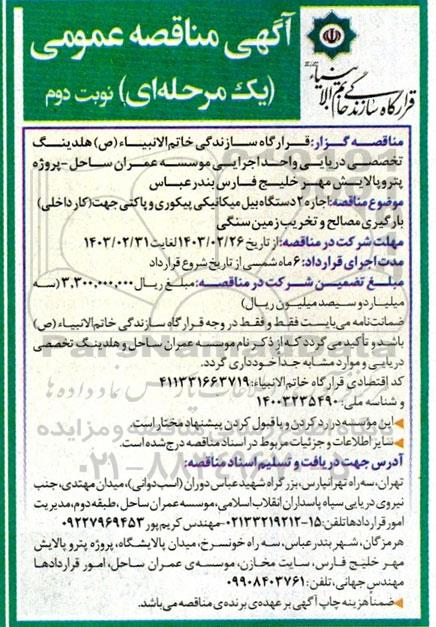 آگهی مناقصه عمومی
(یک مرحله‌ای) نوبت دوم
قرارگاه سازندگی خاتم الانبیاء
مناقصه گزار: قرارگاه سازندگی خاتم‌الانبیاء (ص) هلدینگ
تخصصی دریایی واحد اجرایی موسسه عمران ساحل -پروژه
پتروپالایش مهر خلیج فارس بندرعباس
موضوع مناقصه: اجاره ۲ دستگاه بیل مکانیکی پیکوری و پاکتی جهت (کار داخلی)
بارگیری مصالح و تخریب زمین سنگی
مهلت شرکت در مناقصه: از تاریخ ۱۴۰۳/۰۲/۲۶ لغایت ۱۴۰۳/۰۲/۳۱
مدت اجرای قرارداد: ۶ ماه شمسی از تاریخ شروع قرارداد
مبلغ تضمین شرکت در مناقصه: مبلغ ریال ۳,۳۰۰,۰۰۰,۰۰۰ (سه
میلیارد و سیصد میلیون ریال)
ضمانت‌نامه می‌بایست فقط و فقط در وجه قرارگاه سازندگی خاتم‌الانبیاء (ص)
باشد و تأکید می‌گردد که از ذکر نام موسسه عمران ساحل و هلدینگ تخصصی
دریایی و موارد مشابه جداً خودداری گردد.
کد اقتصادی قرارگاه خاتم‌الانبیاء: ۴۱۱۳۳۱۶۶۳۷۱۹
و شناسه ملی: ۱۴۰۰۳۲۳۵۴۹۰
این موسسه در رد کردن و یا قبول کردن پیشنهاد مختار است.
سایر اطلاعات و جزئیات مربوط در اسناد مناقصه درج شده است.
آدرس جهت دریافت و تسلیم اسناد مناقصه:
تهران، سه راه تهرانپارس، بزرگراه شهید عباس دوران (اسب دوانی)، میدان مهتدی، جنب
نیروی دریایی سپاه پاسداران انقلاب اسلامی، موسسه عمران ساحل، طبقه دوم، مدیریت
امور قراردادها تلفن: ۱۵-۰۲۱۳۳۲۱۹۲۱۲-مهندس کریم پور ۰۹۲۲۷۹۶۹۴۵۳
هرمزگان، شهر بندرعباس، سه راه خونسرخ، میدان پالایشگاه، پروژه پترو پالایش
مهر خلیج فارس، سایت مخازن، موسسه‌ی عمران ساحل، امور قراردادها
مهندس جهانی، تلفن: ۰۹۹۰۸۴۰۳۷۶۱
ضمناً هزینه چاپ آگهی بر عهده‌ی برنده‌ی مناقصه می‌باشد.